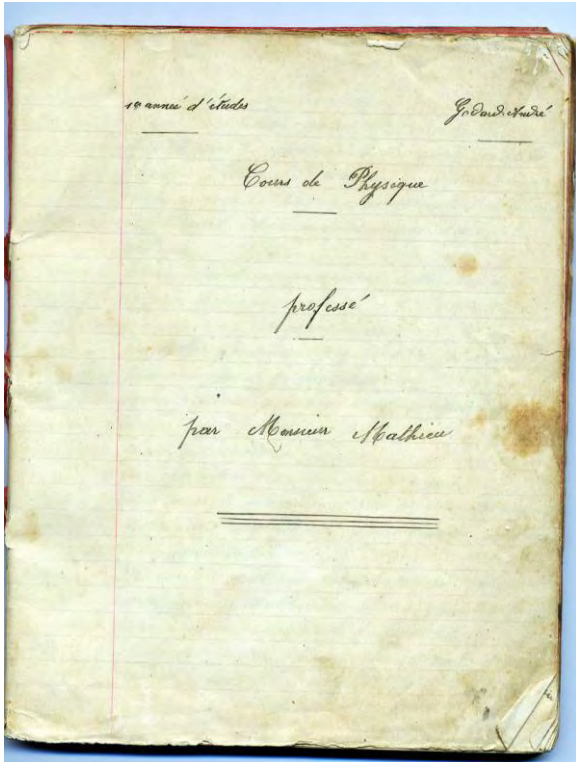 1re année d'études
Godard André
Cours de Physique
professé
par Monsieur Mathieu